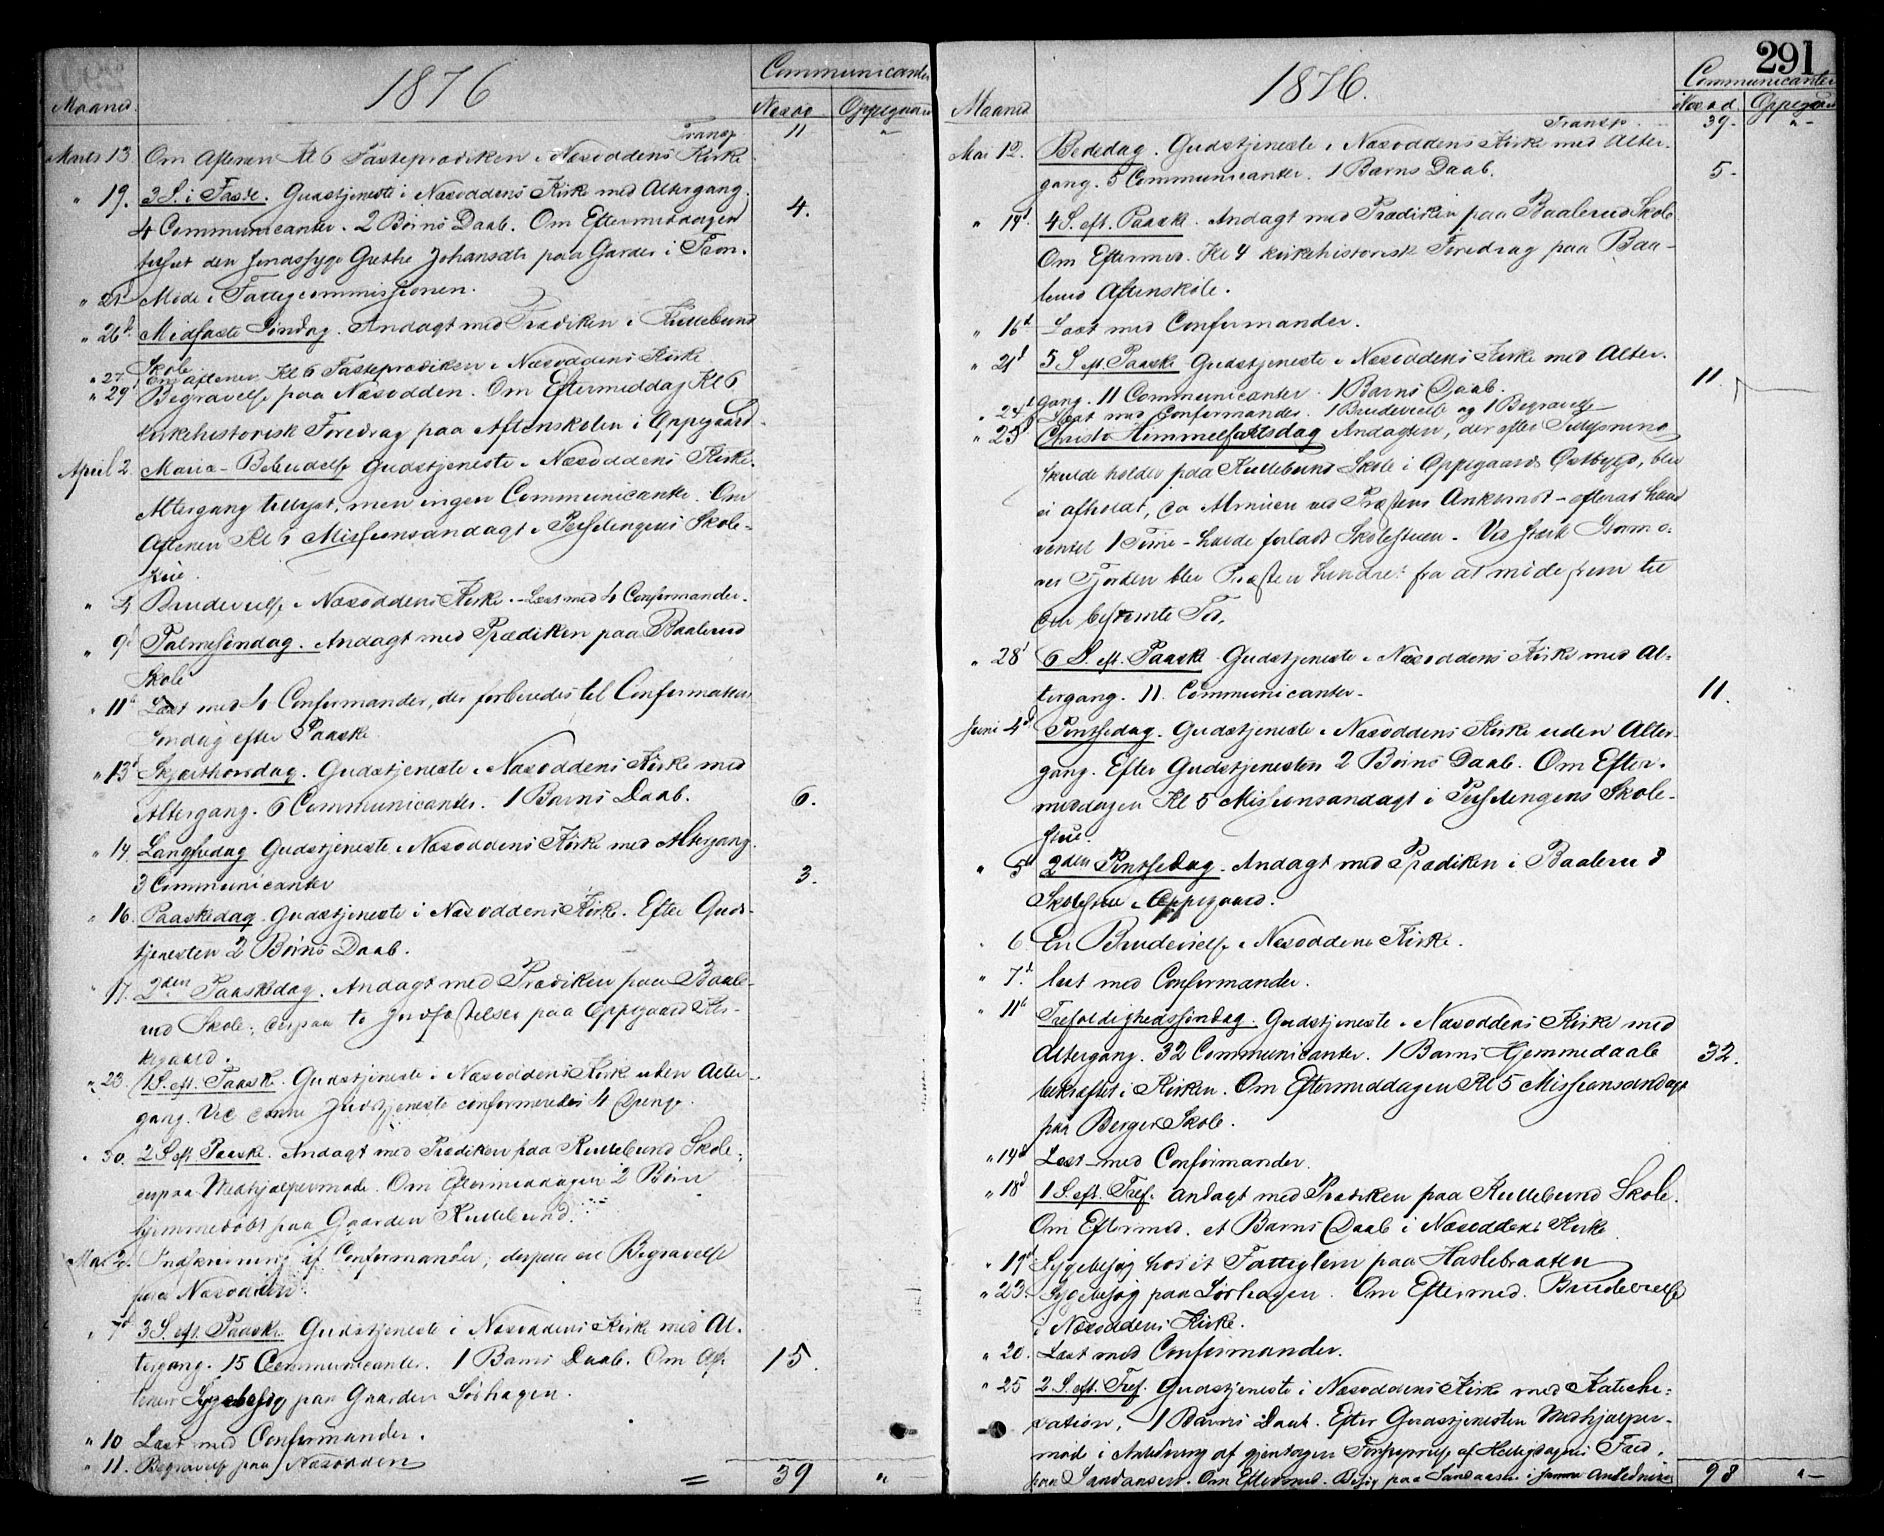 1876
Communicanter
Maaned
Næsod
Oppegaard
Transp. 11 "
Marts 13. Om Aftenen Kl 6 Fasteprædiken i Næsoddens Kirke
" 19. 3 S. i Faste. Gudstjeneste i Næsoddens Kirke med Altergang.
4 Communicanter. 2 Børns Daab. Om Eftermiddagen 4.
den sindssyge Grethe Johansdtr paa Garder i Tron.
" 21 Møde i Fattigcommissionen.
" 26d Midfaste Søndag. Andagt med Prædiken i Kullebund
Skole
" 27 Om Aftenen Kl 6 Fasteprædiken i Næsoddens Kirke
" 29d Begravelse paa Næsodden. Om Eftermiddag Kl 6
kirkehistorisk Foredrag paa Aftenskolen i Oppegaard.
April 2. Maria-Bebudelse Gudstjeneste i Næsoddens Kirke.
Altergang tillyst, men ingen Communicanter. Om
Aftenen Kl Missionsandagt i Skole-
stue.
" 4 Brudevielse i Næsoddens Kirke. - Læst med 4 Confirmander.
" 9d Palmesøndag. Andagt med Prædiken paa Baalerud
Skole
" 11d Læst med 4 Confirmander, der forberedes til Confirmation
Søndag efter Paaske.
" 13d Skjærthorsdag. Gudstjeneste i Næsoddens Kirke med
Altergang. 6 Communicanter. 1 Barns Daab. 6.
" 14. Langfredag Gudstjeneste i Næsoddens Kirke med Altergang.
3 Communicanter 3.
" 16. Paaskedag. Gudstjeneste i Næsoddens Kirke. Efter Guds-
tjenesten 2 Børns Daab.
" 17. 2den Paaskedag. Andagt med Prædiken paa Baale-
rud Skole; derpaa to Jordfæstelser paa Oppegaard Kir-
kegaard.
" 23. 1 S. eft. Paaske. Gudstjeneste i Næsoddens Kirke uden Alter-
gang. Ved denne Gudstjeneste confirmeredes 4 Drenge.
" 30. 2 S. eft. Paaske. Andagt med Prædiken paa Kullebund Skole,
derpaa Medhjælpermøde. Om Eftermiddagen 2 Børn
hjemmedøbt paa Gaarden Kullebund.
Mai 2. Indskrivning af Confirmander, derpaa en Begravelse
paa Næsodden.
" 7d 3 S. eft. Paaske. Gudstjeneste i Næsoddens Kirke med Al-
tergang. 15 Communicanter. 1 Barns Daab. Om Af- 15.
tenen Sygebesøg paa Gaarden Sørhagen.
" 10 Læst med Confirmander.
" 11. Begravelse paa Næsodden
= 39 "
291
1876.
Communicanter
Maaned
Næsod.
Oppegaard
Transp. 39- "-
Mai 12. Bededag. Gudstjeneste i Næsoddens Kirke med Alter-
gang. 5 Communicanter. 1 Barns Daab. 5-
" 14d 4 S. eft. Paaske. Andagt med Prædiken paa Baalerud Skole
Om Eftermid. Kl 4 kirkehistorisk Foredrag paa Baa-
lerud Aftenskole.
" 16d Læst med Confirmander.
" 21d 5 S. eft. Paaske Gudstjeneste i Næsoddens Kirke med Alter-
gang. 11 Communicanter. 1 Barns Daab. 11.
" 24d Læst med Confirmander. 1 Brudevielse og 1 Begravelse
" 25d Christi Himmelfartsdag Andagten, der efter Tillysning
skulde holdes paa Kullebund Skole i Oppegaards Østbygd, blev
ei afholdt, da Almuen ved Præstens Ankomst - efterat have
ventet 1 Time - havde forladt Skolestuen. Ved stærk Storm o-
ver Fjorden blev Præsten hindret fra at møde frem til
den bestemte Tid.
" 28d 6 S. eft. Paaske Gudstjeneste i Næsoddens Kirke med Al-
tergang. 11. Communicanter. 11.
Juni 4d Pintsedag. Gudstjeneste i Næsoddens Kirke uden Alter-
gang. Efter Gudstjenesten 2 Børns Daab. Om Efter-
middagen Kl 5 Missionsandagt i Skole-
stue.
" 5d 2den Pintsedag. Andagt med Prædiken i Baalerud
Skolestue i Oppegaard.
" 6. En Brudevielse i Næsoddens Kirke.
" 7d. læst med Confirmander.
" 11d Trefoldighedssøndag. Gudstjeneste i Næsoddens Kirke med
Altergang. 32 Communicanter. 1 Barns Hjemmedaab 32.
bekræftet i Kirken. Om Eftermiddagen Kl 5 Missionsandagt
paa Berger Skole.
" 14d Læst med Confirmander.
" 18d 1 S. eft. Tref. Andagt med Prædiken paa Kullebund Skole.
Om Eftermid. et Barns Daab i Næsoddens Kirke
" 19d Sygebesøg hos et Fattiglem paa Haslebraaten
" 23. Sygebesøg paa Sørhagen. Om Eftermid. Brudevielse
i Næsoddens Kirke.
" 20. Læst med Confirmander.
" 25 2 S. eft. Tref. Gudstjeneste i Næsoddens Kirke med Kateche-
sation, 1 Barns Daab. Efter Gudstjenesten Medhjælper-
møde i Anledning af gjentagen Forstyrrelse af Helligdagens Fred
paa . Om Eftermid. Besøg paa i samme Anledning 98 "-